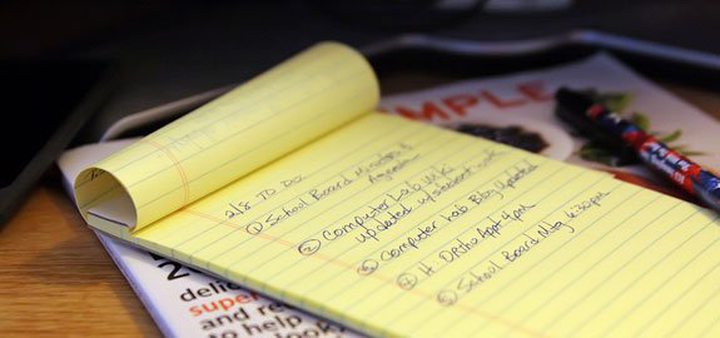 MPLE
2/8 TO DO
① School Board Minutes &
Agenda
② Computer Lab Wk
updated w/student work
③ Computer Lab Blog Updated
④ H Ortho Appt 4pm
⑤ School Board Mtg 6:30pm
2
delic
super
and re
to help
look